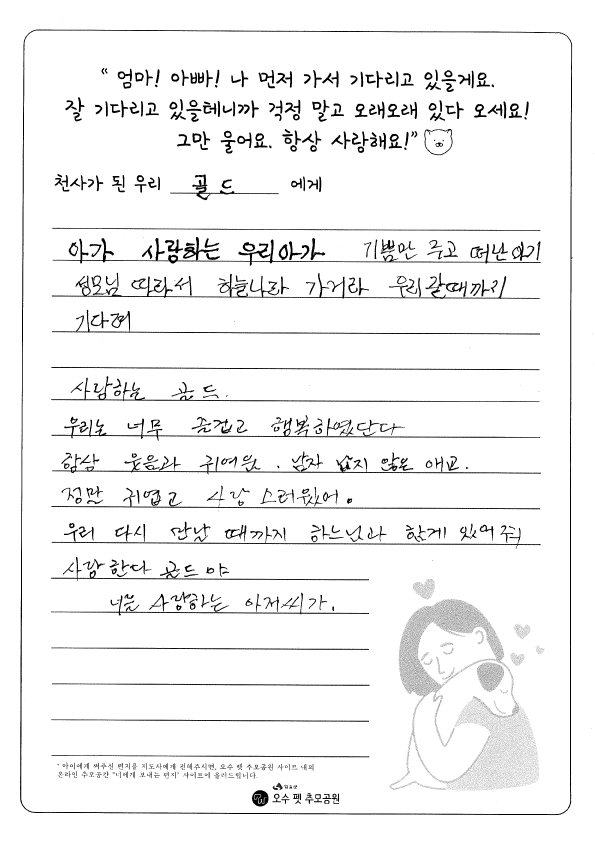 “ 엄마! 아빠! 나 먼저 가서 기다리고 있을게요.
잘 기다리고 있을테니까 걱정 말고 오래오래 있다 오세요!
그만 울어요. 항상 사랑해요!”
천사가 된 우리 골드 에게
아가 사랑하는 우리아가 기쁨만 주고 떠난아기
성모님 따라서 하늘나라 가거라 우리갈때까지
기다려
사랑하는 골드.
우리는 너무 즐겁고 행복하였단다
항상 웃음과 귀여움. 남자 답지 않은 애교.
정말 귀엽고 사랑스러웠어.
우리 다시 만날 때까지 하느님과 함께 있어줘
사랑한다 골드야
너를 사랑하는 아저씨가.
* 아이에게 써주신 편지를 지도사에게 전해주시면, 오수 펫 추모공원 사이트 내의
온라인 추모공간 "너에게 보내는 편지" 사이트에 올려드립니다.
임실군
오수 펫 추모공원